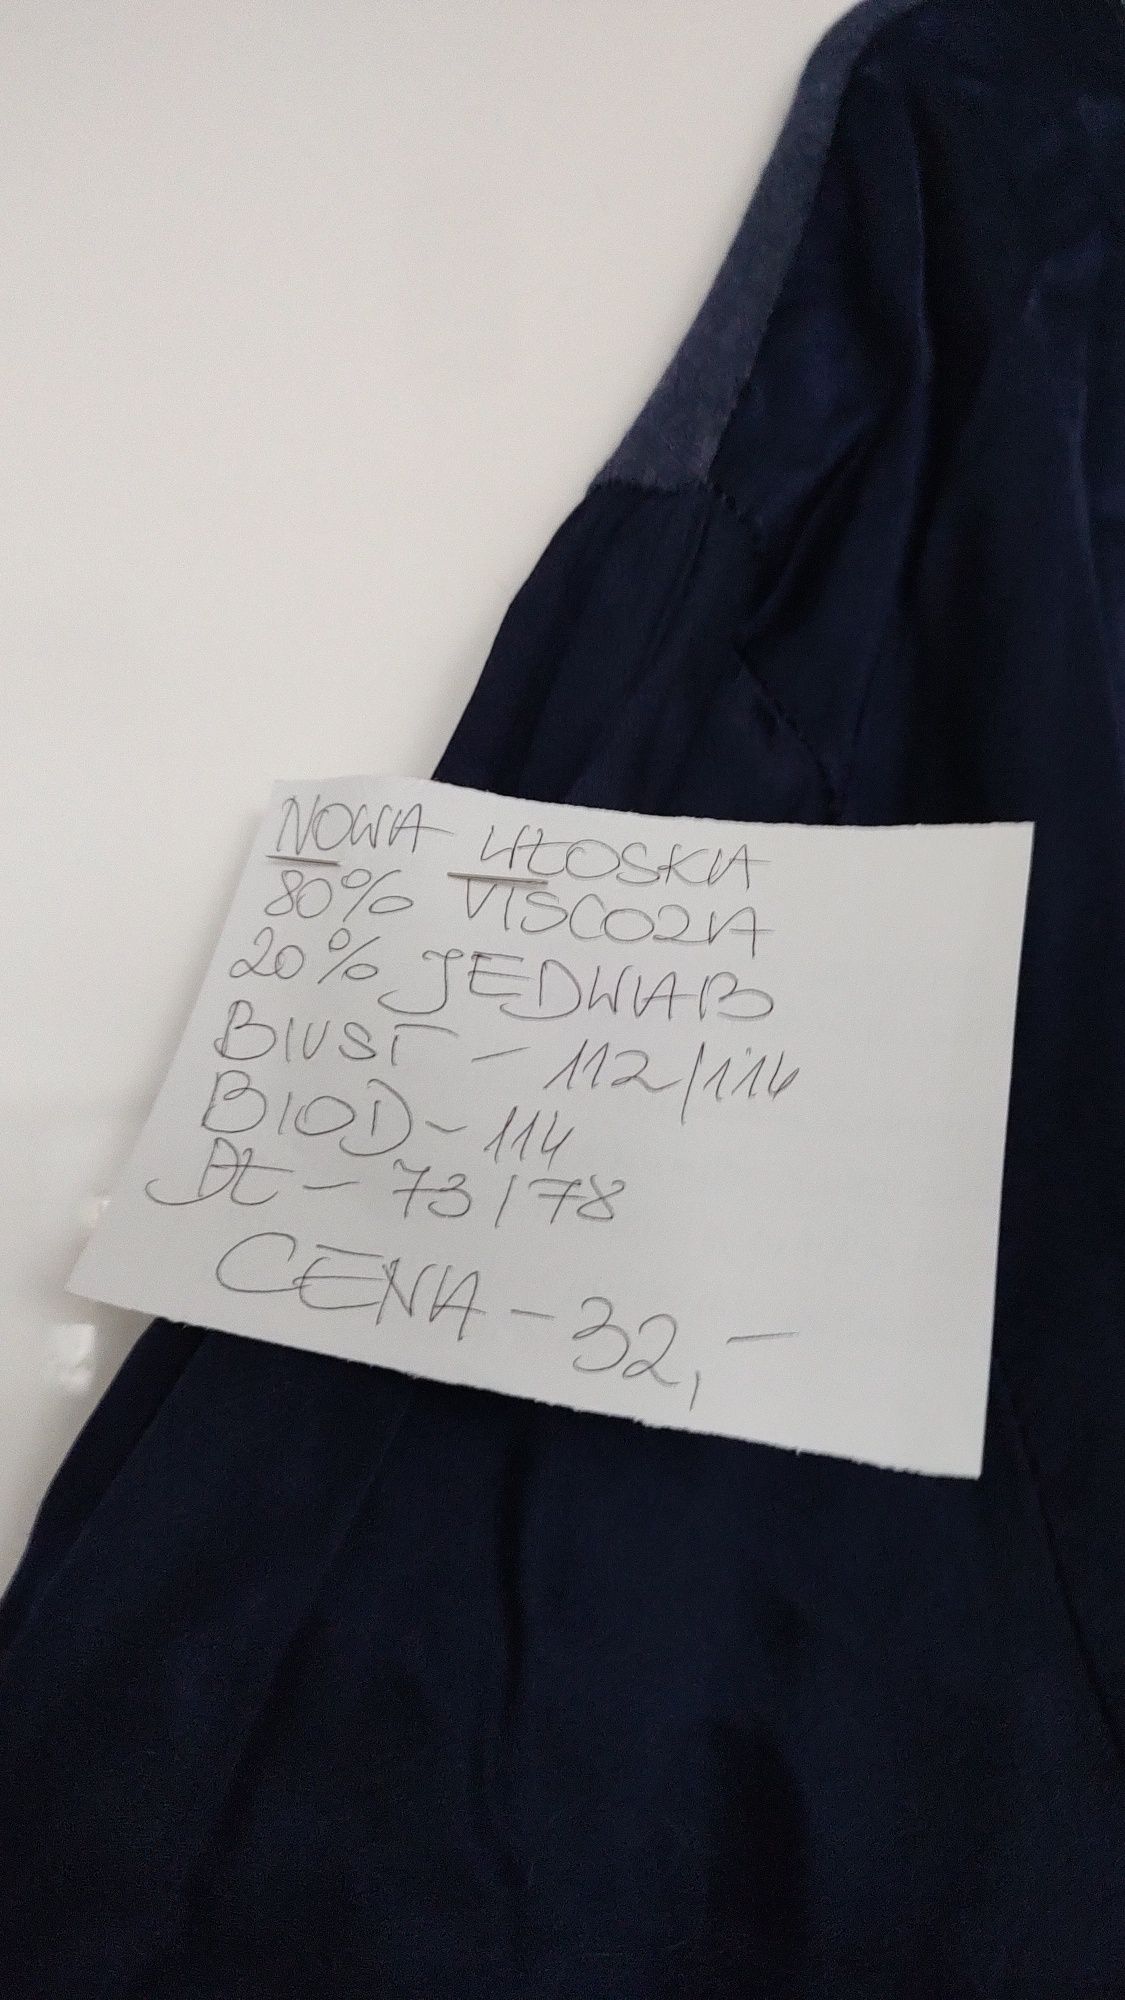 NOWA WŁOSKA
80% VISCOZA
20% JEDWAB
BIUST - 112/116
BIOD - 114
DŁ - 73/78
CENA - 32,-